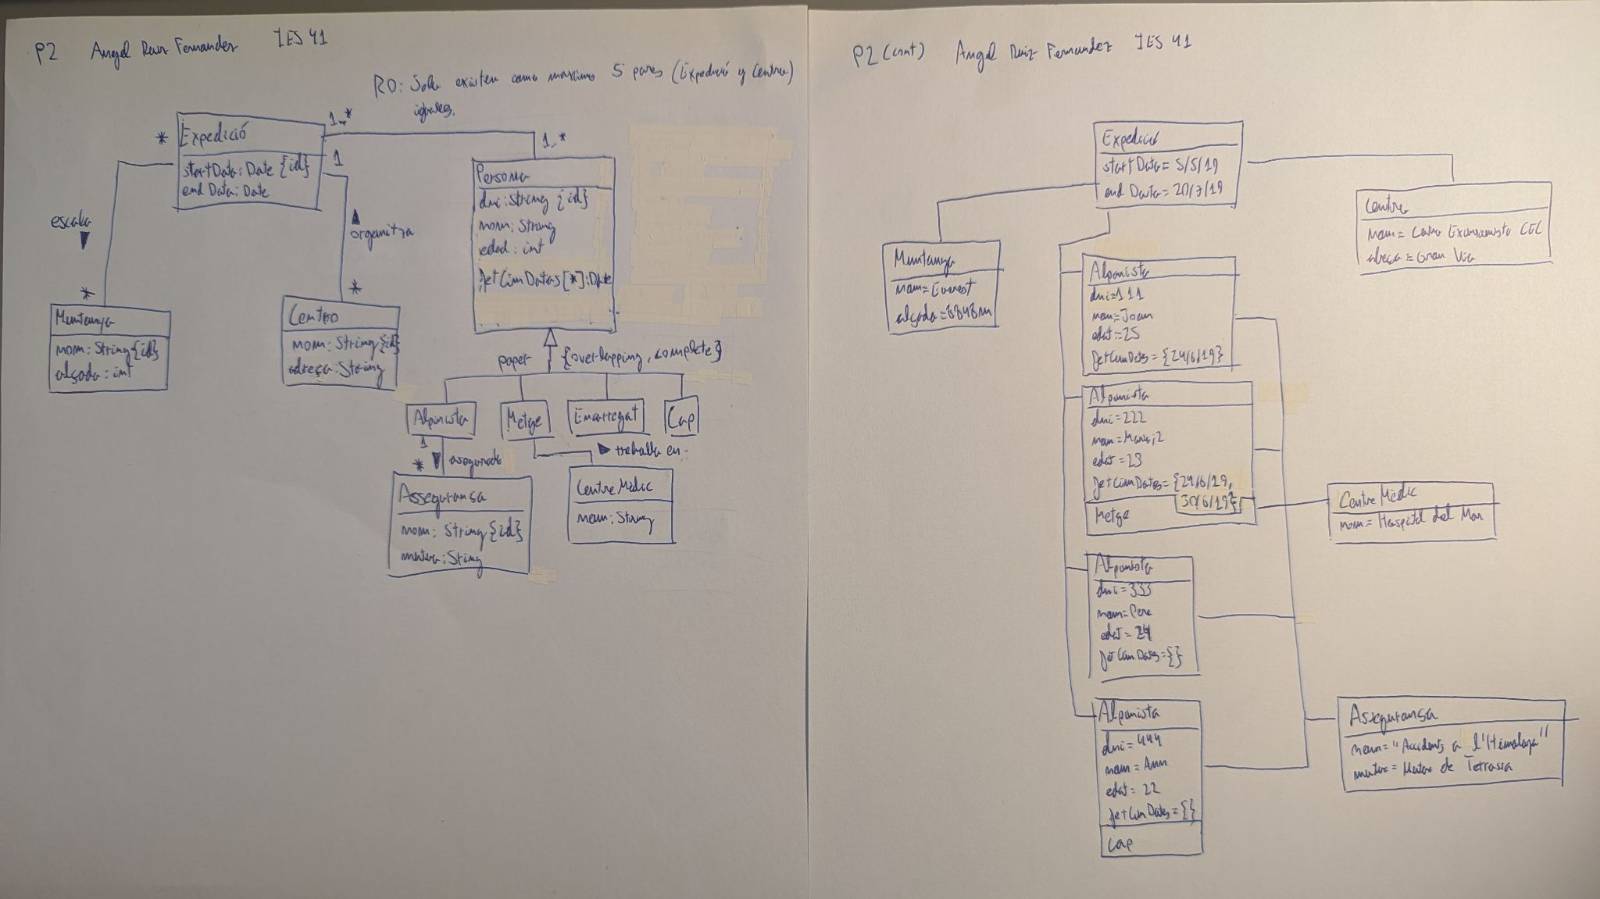 P2 Angel Ruiz Fernandez IES 41
R0: Solo existen como maximo 5 pares (Expedició y Centro)
iguales.
Expedició
startData: Date {id}
end Data: Date
*
1..*
1
1..*
Persona
dni: String {id}
nom: String
edad: int
fetCimDatas[*]: Date
escala
organitza
*
*
Muntanya
nom: String {id}
alçada: int
Centro
nom: String {id}
adreça: String
paper {overlapping, complete}
Alpinista
Metge
Encarregat
Cap
1
* asegurado
trabaja en
Assegurança
nom: String {id}
mutua: String
Centre Mèdic
nom: String
P2 (cont) Angel Ruiz Fernandez IES 41
Expedició
startData = 5/5/19
end Data = 20/7/19
Centre
nom = Centre Excursionista CEC
adreça = Gran Via
Muntanya
nom = Everest
alçada = 8848m
Alpinista
dni = 111
nom = Joan
edat = 25
fetCimDates = {24/6/19}
Alpinista
dni = 222
edat = 23
fetCimDates = {24/6/19,
30/6/19}
Metge
Centre Mèdic
nom = Hospital del Mar
Alpinista
dni = 333
nom = Pere
edat = 24
fetCimDates = {}
Alpinista
dni = 444
nom = Ann
edat = 22
fetCimDates = {}
Cap
Assegurança
nom = "Accidents a l'Himalaya"
mutua = Mutua de Terrassa